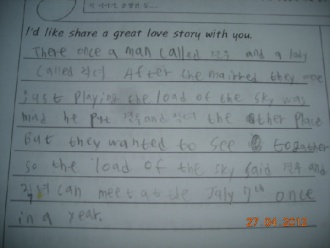 I'd like share a great love story with you.
There once a man called 견우 and a lady
called 직녀 After the mairred they were
just playing the load of the sky was
mad he put 견우and 직녀 the other place
But they wanted to see togather
so the load of the sky said 견우 and
직녀 can meet at the July 7th once
in a year.
27.04.2013